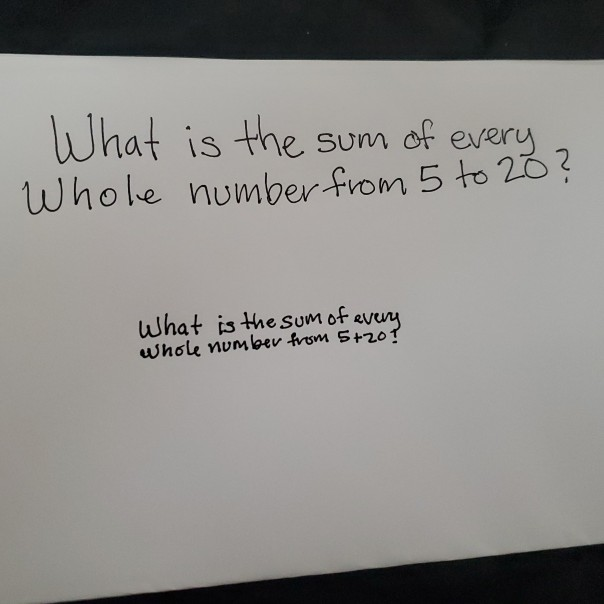 What is the sum of every
Whole number from 5 to 20?
What is the sum of every
whole number from 5+20?